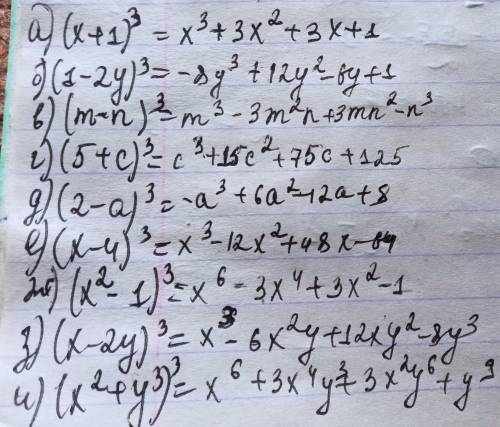 а) (x+1)³ = x³+3x²+3x+1
б) (1-2y)³ = -8y³+12y²-6y+1
в) (m-n)³ = m³-3m²n+3mn²-n³
г) (5+c)³ = c³+15c²+75c+125
д) (2-a)³ = -a³+6a²-12a+8
е) (x-4)³ = x³-12x²+48x-64
ж) (x²-1)³ = x⁶-3x⁴+3x²-1
з) (x-2y)³ = x³-6x²y+12xy²-8y³
и) (x²+y³)³ = x⁶+3x⁴y³+3x²y⁶+y⁹